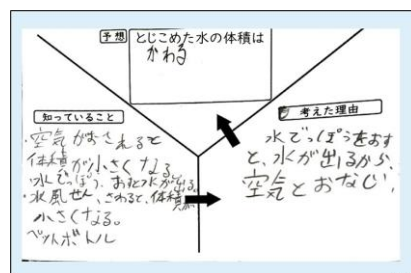 予想 とじこめた水の体積は
かわる
知っていること
・空気がおされると
体積が小さくなる
・水でっぽう、おすと水が出る。
・水風せん、さわると、体積
小さくなる。
ペットボトル
考えた理由
水でっぽうをおす
と、水が出るから、
空気とおなじ。